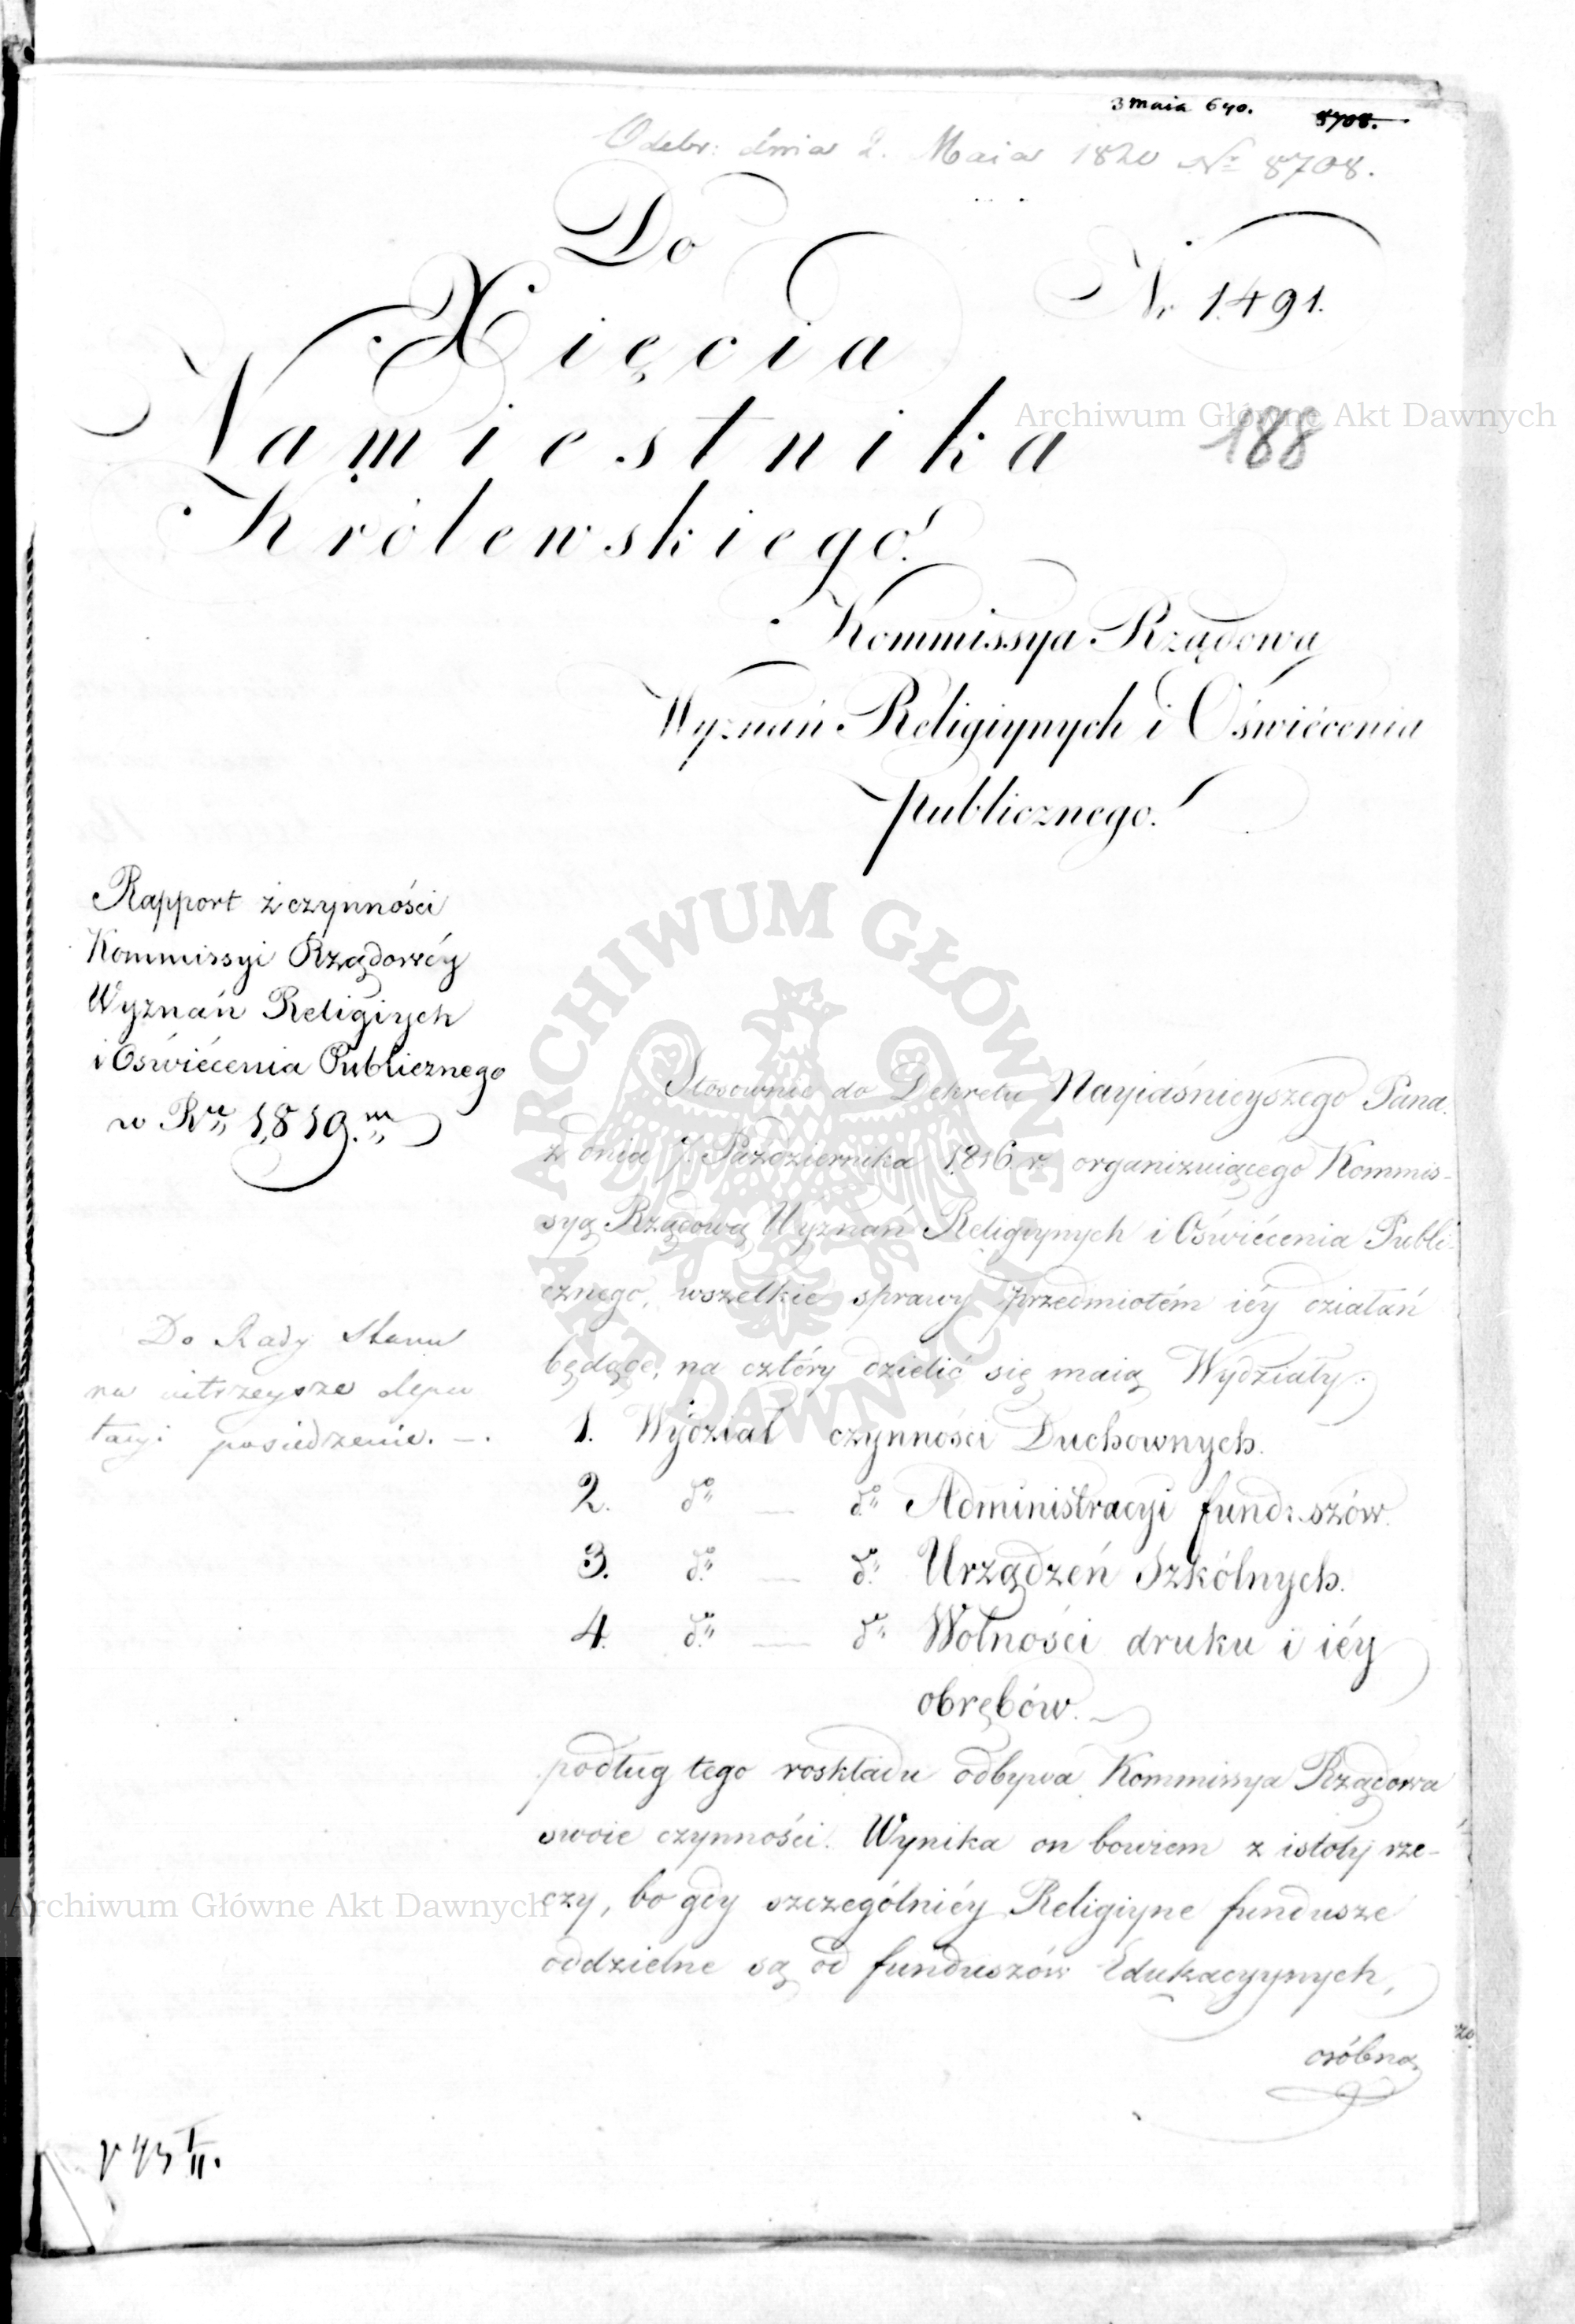 3 maia 640. 8708.
Odebr: dnia 2. Maia 1820 Nr 8708.
Do
Nr 1491.
Xięcia
Archiwum Główne Akt Dawnych
Namiestnika
188
Królewskiego!
Kommissya Rządowa
Wyznań Religiynych i Oświécenia
publicznego!
Rapport z czynności
Kommissyi Rządowéy
Wyznań Religiych
i Oświécenia Publicznego
w Ru 1819.m
ARCHIWUM GŁÓWNE AKT DAWNYCH
Stosownie do Dekretu Nayiaśnieyszego Pana
z dnia 7. Października 1816 r. organizuiącego Kommis-
syą Rządową Wyznań Religiynych i Oświécenia Publi-
cznego, wszelkie sprawy przedmiotém iéy działań
będące, na cztéry dzielić się maią Wydziały.
Do Rady Stanu
na iutrzeysze depu
tacyi posiedzenie. —.
1. Wydział czynności Duchownych.
2. do — do Administracyi funduszów.
3. do — do Urządzeń Szkólnych.
4. do — do Wolności druku i iéy
obrębów.
podług tego roskładu odbywa Kommissya Rządowa
swoie czynności. Wynika on bowiem z istoty rze-
czy, bo gdy szczególniéy Religiyne fundusze
Archiwum Główne Akt Dawnych
oddzielne są od funduszów Edukacyynych,
osóbną